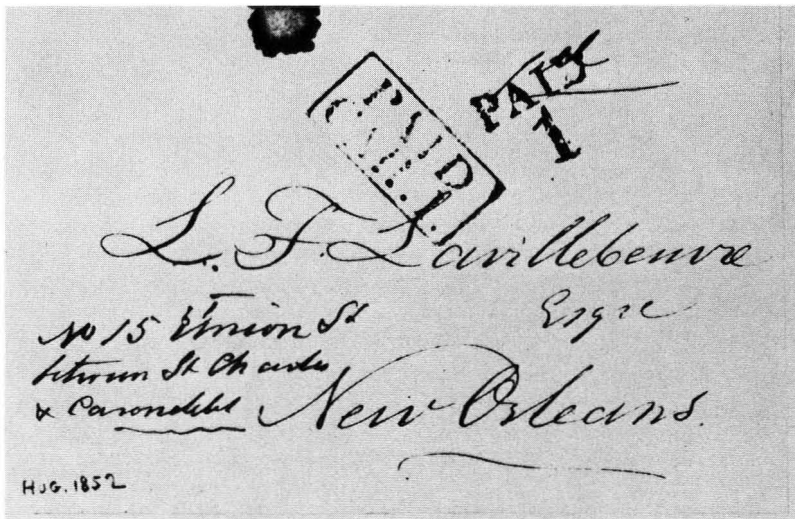 PAID
1
PAID
CAR. 1.
L. F. Lavillebeuvre
Esqre
No 15 Union St
between St Charles
& Carondelet
New Orleans.
HJG. 1852